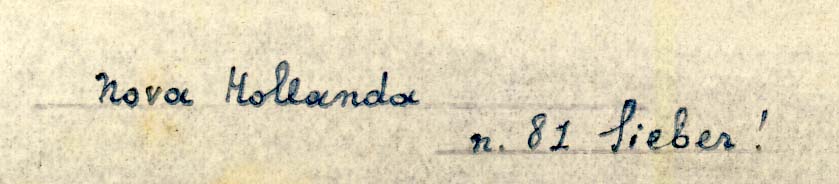 Nova Hollanda
n. 81 Sieber!